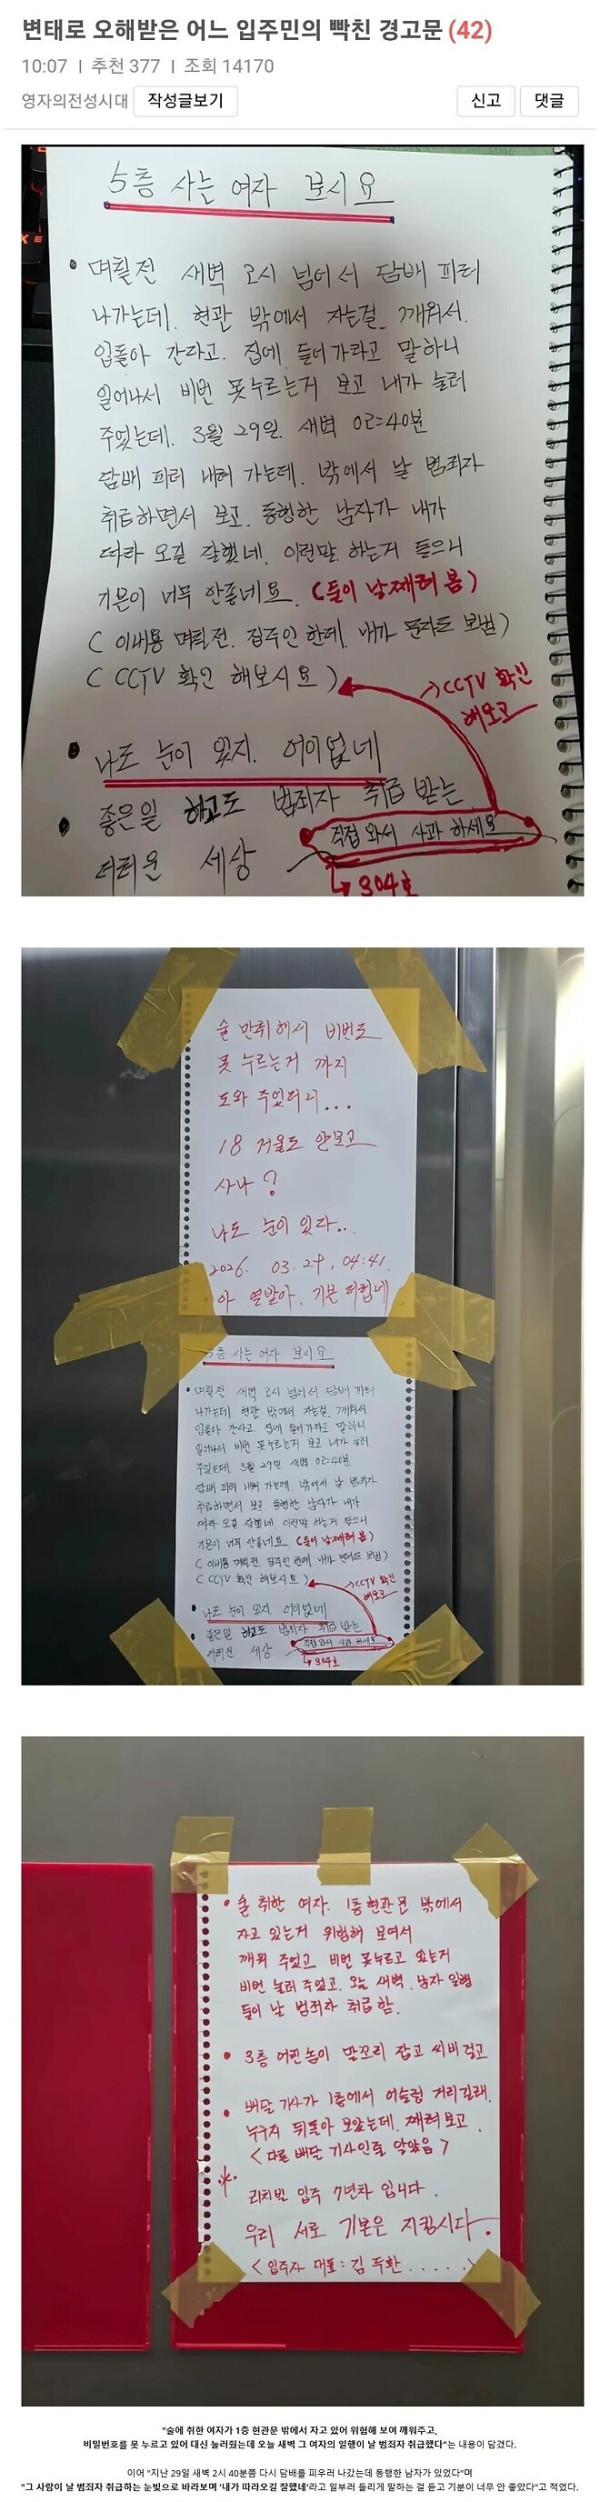 변태로 오해받은 어느 입주민의 빡친 경고문 (42)
10:07 | 추천 377 | 조회 14170
영자의전성시대 작성글보기 신고 댓글
5층 사는 여자 보시요
• 며칠전 새벽 2시 넘어서 담배 피러
나가는데. 현관 밖에서 자는걸 깨워서.
입돌아 간다고. 집에 들어가라고 말하니
일어나서 비번 못누르는거 보고 내가 눌러
주었는데. 3월 29일. 새벽 02:40분
담배 피러 내려 가는데. 밖에서 날 범죄자
취급하면서 보고. 동행한 남자가 내가
따라 오길 잘했네. 이런말. 하는거 들으니
기분이 너무 안좋네요. (둘이 날째려 봄)
( 이내용 며칠전. 집주인 한테. 내가 문자도 보냄)
( CCTV 확인 해보시요 )
→CCTV 확인
해보고
• 나도 눈이 있지. 어이없네
• 좋은일 하고도 범죄자 취급 받는
더러운 세상
직접 와서 사과 하세요
→304호
술 만취해서 비번도
못 누르는거 까지
도와 주었더니...
18 거울도 안보고
사나?
나도 눈이 있다..
2026. 03. 29, 04:41.
아 열받아. 기분 더럽네
5층 사는 여자 보시요
• 며칠전 새벽 2시 넘어서 담배 피러
나가는데. 현관 밖에서 자는걸 깨워서
입돌아 간다고. 집에 들어가라고 말하니
일어나서 비번 못누르는거 보고 내가 눌러
주었는데. 3월 29일. 새벽 02:40분
담배 피러 내려 가는데. 밖에서 날 범죄자
취급하면서 보고. 동행한 남자가 내가
따라 오길 잘했네. 이런말 하는거 들으니
기분이 너무 안좋네요. (둘이 날째려 봄)
( 이내용 며칠전. 집주인 한테. 내가 문자도 보냄)
( CCTV 확인 해보시요 )
→CCTV 확인
해보고
• 나도 눈이 있지. 어이없네
• 좋은일 하고도 범죄자 취급 받는
더러운 세상
직접 와서 사과 하세요
→304호
• 술 취한 여자. 1층현관문 밖에서
자고 있는거 위험해 보여서
깨워 주었고 비번 못누르고 있는거
비번 눌러 주었고. 오늘 새벽. 남자 일행
둘이 날 범죄자 취급함.
• 3층 어린놈이 말꼬리 잡고 씨비 걸고
• 배달 기사가 1층에서 어슬렁 거리길래.
누구지 뒤돌아 보았는데. 째려보고.
< 다른 배달 기사인줄 알았음 >
※ 리치빌 입주 7년차 입니다.
우리 서로 기본은 지킵시다.
< 입주자 대표 : 김 두환 ..... >
"술에 취한 여자가 1층 현관문 밖에서 자고 있어 위험해 보여 깨워주고,
비밀번호를 못 누르고 있어 대신 눌러줬는데 오늘 새벽 그 여자의 일행이 날 범죄자 취급했다"는 내용이 담겼다.
이어 "지난 29일 새벽 2시 40분쯤 다시 담배를 피우러 나갔는데 동행한 남자가 있었다"며
"그 사람이 날 범죄자 취급하는 눈빛으로 바라보며 '내가 따라오길 잘했네'라고 일부러 들리게 말하는 걸 듣고 기분이 너무 안 좋았다"고 적었다.